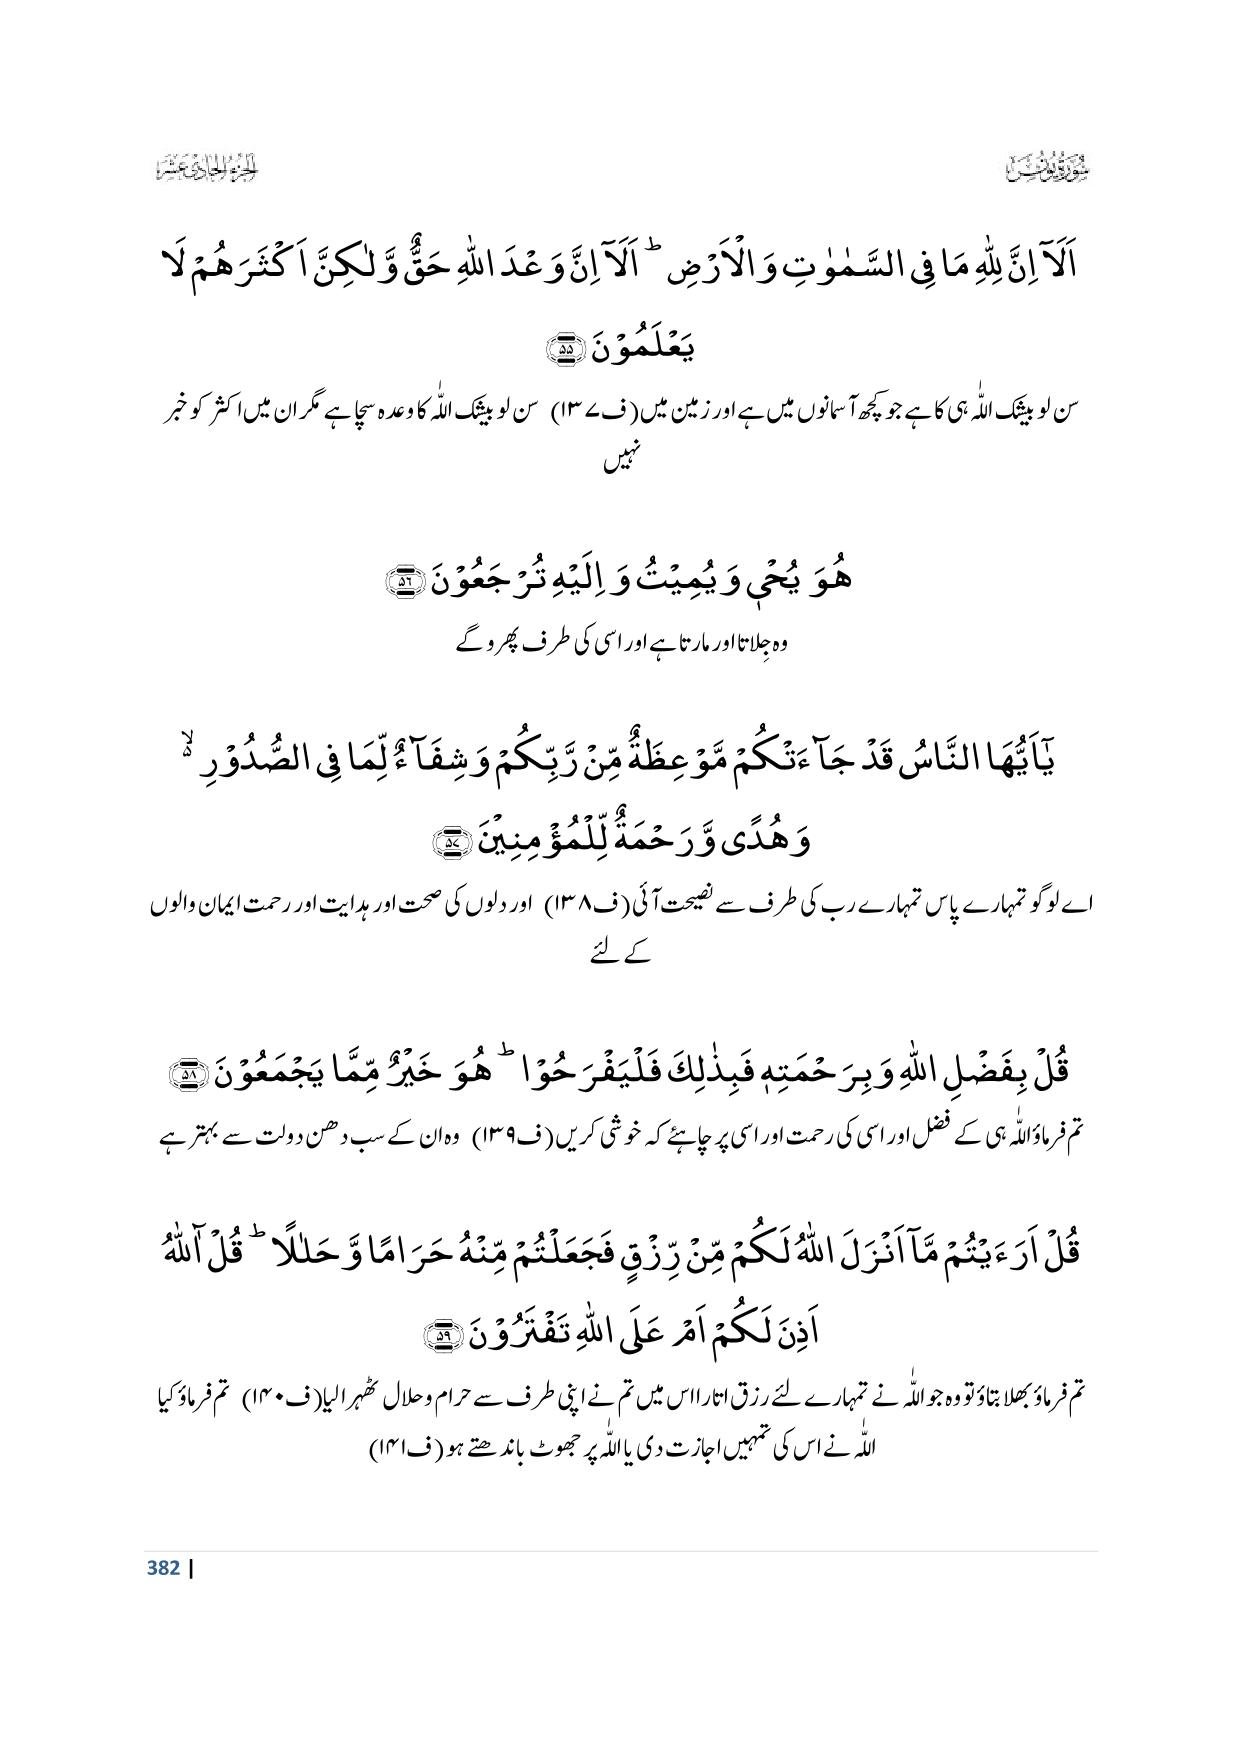 سُوْرَةُ يُوْنُس
الجزء الحادی عشر
اَلَاۤ اِنَّ لِلّٰهِ مَا فِی السَّمٰوٰتِ وَ الْاَرْضِ ؕ اَلَاۤ اِنَّ وَعْدَ اللّٰهِ حَقٌّ وَّ لٰكِنَّ اَكْثَرَهُمْ لَا
یَعْلَمُوْنَ ﴿۵۵﴾
سن لو بیشک اللّٰہ ہی کا ہے جو کچھ آسمانوں میں ہے اور زمین میں (ف۱۳۷) سن لو بیشک اللّٰہ کا وعدہ سچا ہے مگر ان میں اکثر کو خبر
نہیں
هُوَ یُحْیٖ وَ یُمِیْتُ وَ اِلَیْهِ تُرْجَعُوْنَ ﴿۵۶﴾
وہ جِلاتا اور مارتا ہے اور اسی کی طرف پھرو گے
یٰۤاَیُّهَا النَّاسُ قَدْ جَآءَتْكُمْ مَّوْعِظَةٌ مِّنْ رَّبِّكُمْ وَ شِفَآءٌ لِّمَا فِی الصُّدُوْرِ ۙ۬
وَ هُدًی وَّ رَحْمَةٌ لِّلْمُؤْمِنِیْنَ ﴿۵۷﴾
اے لوگو تمہارے پاس تمہارے رب کی طرف سے نصیحت آئی (ف۱۳۸) اور دلوں کی صحت اور ہدایت اور رحمت ایمان والوں
کے لئے
قُلْ بِفَضْلِ اللّٰهِ وَ بِرَحْمَتِهٖ فَبِذٰلِكَ فَلْیَفْرَحُوْا ؕ هُوَ خَیْرٌ مِّمَّا یَجْمَعُوْنَ ﴿۵۸﴾
تم فرماؤ اللّٰہ ہی کے فضل اور اسی کی رحمت اور اسی پر چاہئے کہ خوشی کریں (ف۱۳۹) وہ ان کے سب دھن دولت سے بہتر ہے
قُلْ اَرَءَیْتُمْ مَّاۤ اَنْزَلَ اللّٰهُ لَكُمْ مِّنْ رِّزْقٍ فَجَعَلْتُمْ مِّنْهُ حَرَامًا وَّ حَلٰلًا ؕ قُلْ آٰللّٰهُ
اَذِنَ لَكُمْ اَمْ عَلَی اللّٰهِ تَفْتَرُوْنَ ﴿۵۹﴾
تم فرماؤ بھلا بتاؤ تو وہ جو اللّٰہ نے تمہارے لئے رزق اتارا اس میں تم نے اپنی طرف سے حرام و حلال ٹھہرالیا (ف۱۴۰) تم فرماؤ کیا
اللّٰہ نے اس کی تمہیں اجازت دی یا اللّٰہ پر جھوٹ باندھتے ہو (ف۱۴۱)
382 |